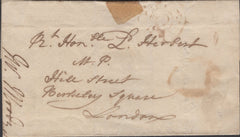 Rt Honble Ld Herbert
M.P.
Hill Street
Berkeley Square
London